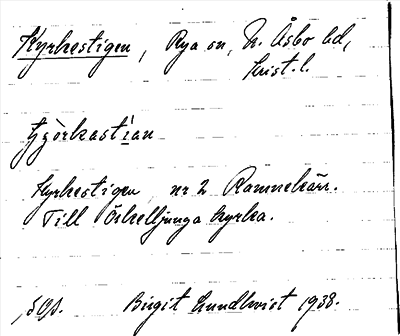 Kyrkestigen, Rya sn, N. Åsbo hd,
Krist. l.
Kyrkestigen nr 2 Ramnekärr.
Till Örkelljunga kyrka.
Birgit Lundkvist 1938.